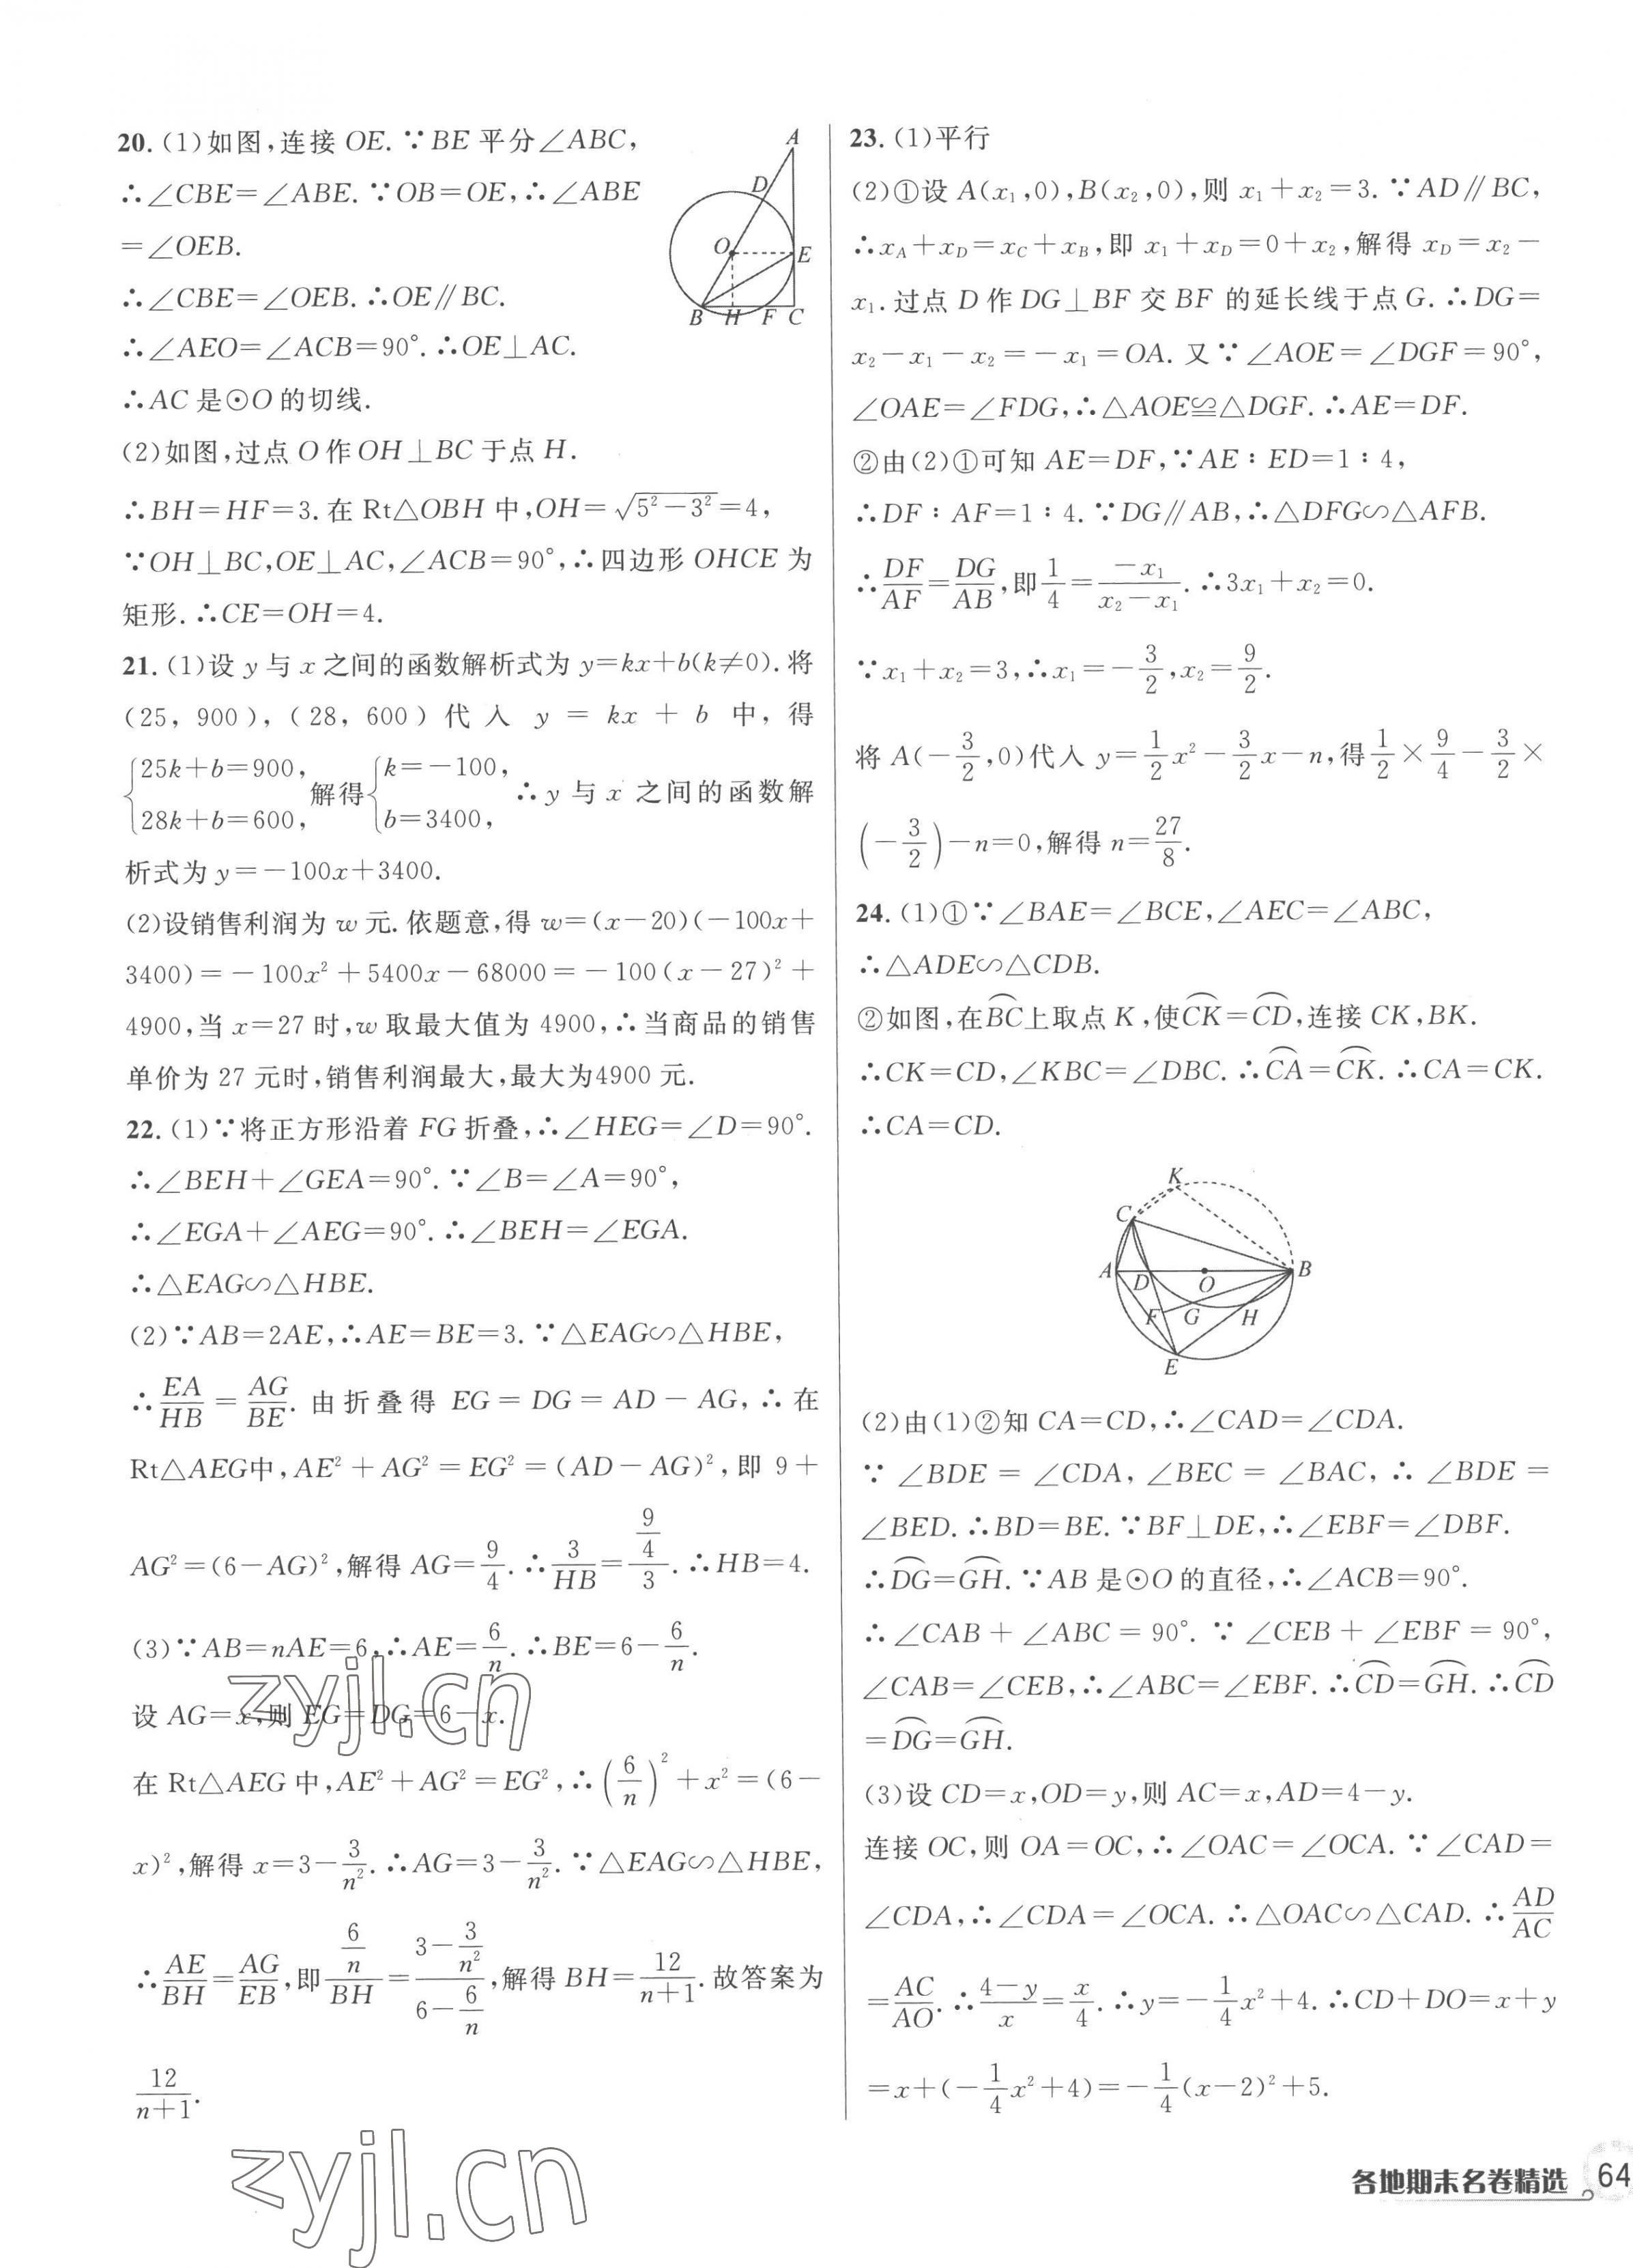 20. (1)如图,连接 OE. ∵BE 平分∠ABC,
∴∠CBE=∠ABE. ∵OB=OE,∴∠ABE
=∠OEB.
∴∠CBE=∠OEB. ∴OE∥BC.
∴∠AEO=∠ACB=90°. ∴OE⊥AC.
∴AC 是⊙O 的切线.
A
D
O
E
B H F C
(2)如图,过点 O 作 OH⊥BC 于点 H.
∴BH=HF=3. 在 Rt△OBH 中,OH=√(5²-3²)=4,
∵OH⊥BC,OE⊥AC,∠ACB=90°,∴四边形 OHCE 为
矩形. ∴CE=OH=4.
21. (1)设 y 与 x 之间的函数解析式为 y=kx+b(k≠0). 将
(25, 900), (28, 600) 代入 y = kx + b 中, 得
{25k+b=900, 28k+b=600, 解得{k=-100, b=3400, ∴y 与 x 之间的函数解
析式为 y=-100x+3400.
(2)设销售利润为 w 元. 依题意,得 w=(x-20)(-100x+
3400)=-100x²+5400x-68000=-100(x-27)²+
4900,当 x=27 时,w 取最大值为 4900,∴当商品的销售
单价为 27 元时,销售利润最大,最大为4900 元.
22. (1)∵将正方形沿着 FG 折叠,∴∠HEG=∠D=90°.
∴∠BEH+∠GEA=90°. ∵∠B=∠A=90°,
∴∠EGA+∠AEG=90°. ∴∠BEH=∠EGA.
∴△EAG∽△HBE.
(2)∵AB=2AE,∴AE=BE=3. ∵△EAG∽△HBE,
∴EA/HB=AG/BE. 由折叠得 EG=DG=AD-AG,∴在
Rt△AEG中,AE²+AG²=EG²=(AD-AG)²,即 9+
AG²=(6-AG)²,解得 AG=9/4. ∴3/HB=(9/4)/3. ∴HB=4.
(3)∵AB=nAE=6,∴AE=6/n. ∴BE=6-6/n.
设 AG=x,则 EG=DG=6-x.
在 Rt△AEG 中,AE²+AG²=EG²,∴(6/n)²+x²=(6-
x)²,解得 x=3-3/n². ∴AG=3-3/n². ∵△EAG∽△HBE,
∴AE/BH=AG/EB,即(6/n)/BH=(3-3/n²)/(6-6/n),解得 BH=12/(n+1). 故答案为
12/(n+1).
23. (1)平行
(2)①设 A(x₁,0),B(x₂,0),则 x₁+x₂=3. ∵AD∥BC,
∴x_A+x_D=x_C+x_B,即 x₁+x_D=0+x₂,解得 x_D=x₂-
x₁. 过点 D 作 DG⊥BF 交 BF 的延长线于点 G. ∴DG=
x₂-x₁-x₂=-x₁=OA. 又∵∠AOE=∠DGF=90°,
∠OAE=∠FDG,∴△AOE≌△DGF. ∴AE=DF.
②由(2)①可知 AE=DF,∵AE∶ED=1∶4,
∴DF∶AF=1∶4. ∵DG∥AB,∴△DFG∽△AFB.
∴DF/AF=DG/AB,即1/4=-x₁/(x₂-x₁). ∴3x₁+x₂=0.
∵x₁+x₂=3,∴x₁=-3/2,x₂=9/2.
将 A(-3/2,0)代入 y=1/2x²-3/2x-n,得1/2×9/4-3/2×
(-3/2)-n=0,解得 n=27/8.
24. (1)①∵∠BAE=∠BCE,∠AEC=∠ABC,
∴△ADE∽△CDB.
②如图,在⌒BC上取点 K,使⌒CK=⌒CD,连接 CK,BK.
∴CK=CD,∠KBC=∠DBC. ∴⌒CA=⌒CK. ∴CA=CK.
∴CA=CD.
K
C
A D O B
F G H
E
(2)由(1)②知 CA=CD,∴∠CAD=∠CDA.
∵∠BDE=∠CDA,∠BEC=∠BAC,∴∠BDE=
∠BED. ∴BD=BE. ∵BF⊥DE,∴∠EBF=∠DBF.
∴⌒DG=⌒GH. ∵AB 是⊙O 的直径,∴∠ACB=90°.
∴∠CAB+∠ABC=90°. ∵∠CEB+∠EBF=90°,
∠CAB=∠CEB,∴∠ABC=∠EBF. ∴⌒CD=⌒GH. ∴⌒CD
=⌒DG=⌒GH.
(3)设 CD=x,OD=y,则 AC=x,AD=4-y.
连接 OC,则 OA=OC,∴∠OAC=∠OCA. ∵∠CAD=
∠CDA,∴∠CDA=∠OCA. ∴△OAC∽△CAD. ∴AD/AC
=AC/AO. ∴(4-y)/x=x/4. ∴y=-1/4x²+4. ∴CD+DO=x+y
=x+(-1/4x²+4)=-1/4(x-2)²+5.
zyjl.cn
zyjl.cn
各地期末名卷精选 64